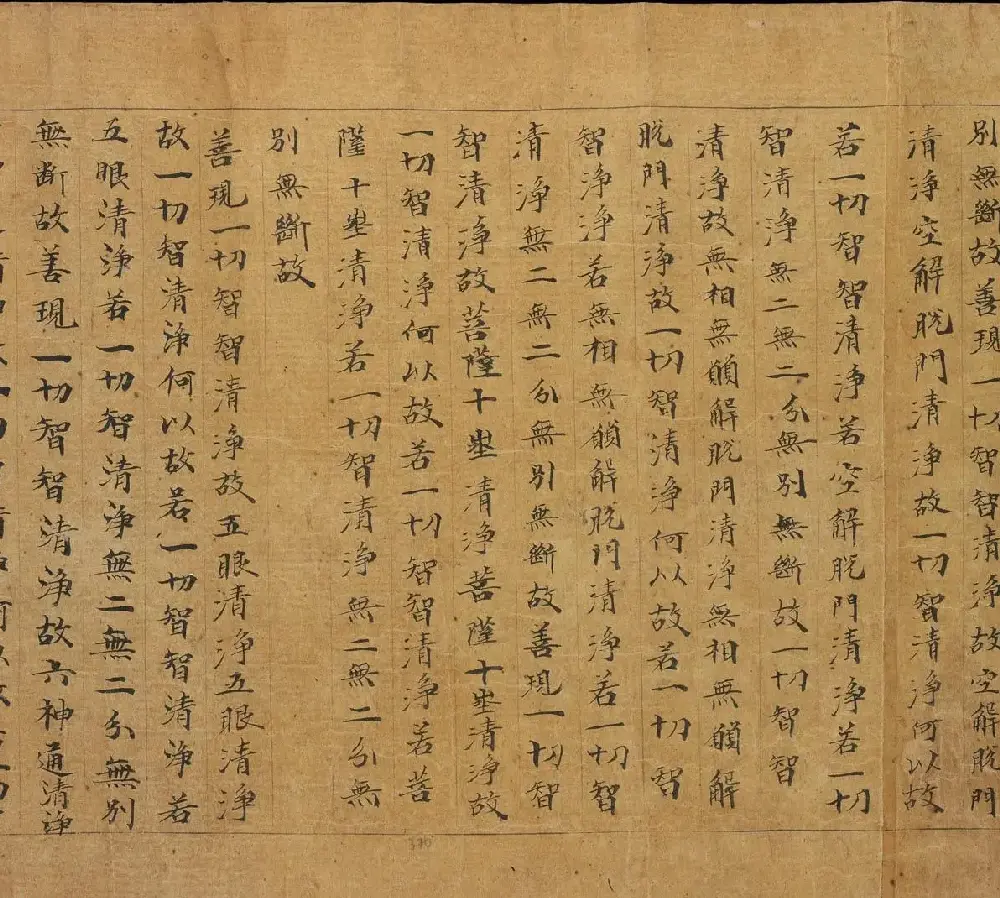 別無斷故善現一切智智清淨故空解脫門
清淨空解脫門清淨故一切智清淨何以故
若一切智智清淨若空解脫門清淨若一切
智清淨無二無二分無別無斷故一切智智
清淨故無相無願解脫門清淨無相無願解
脫門清淨故一切智清淨何以故若一切智
智淨淨若無相無願解脫門清淨若一切智
清淨無二無二分無別無斷故善現一切智
智清淨故菩薩十埊清淨菩薩十埊清淨故
一切智清淨何以故若一切智智清淨若菩
薩十埊清淨若一切智清淨無二無二分無
別無斷故
善現一切智智清淨故五眼清淨五眼清淨
故一切智清淨何以故若一切智智清淨若
五眼清淨若一切智清淨無二無二分無別
無斷故善現一切智智清淨故六神通清淨